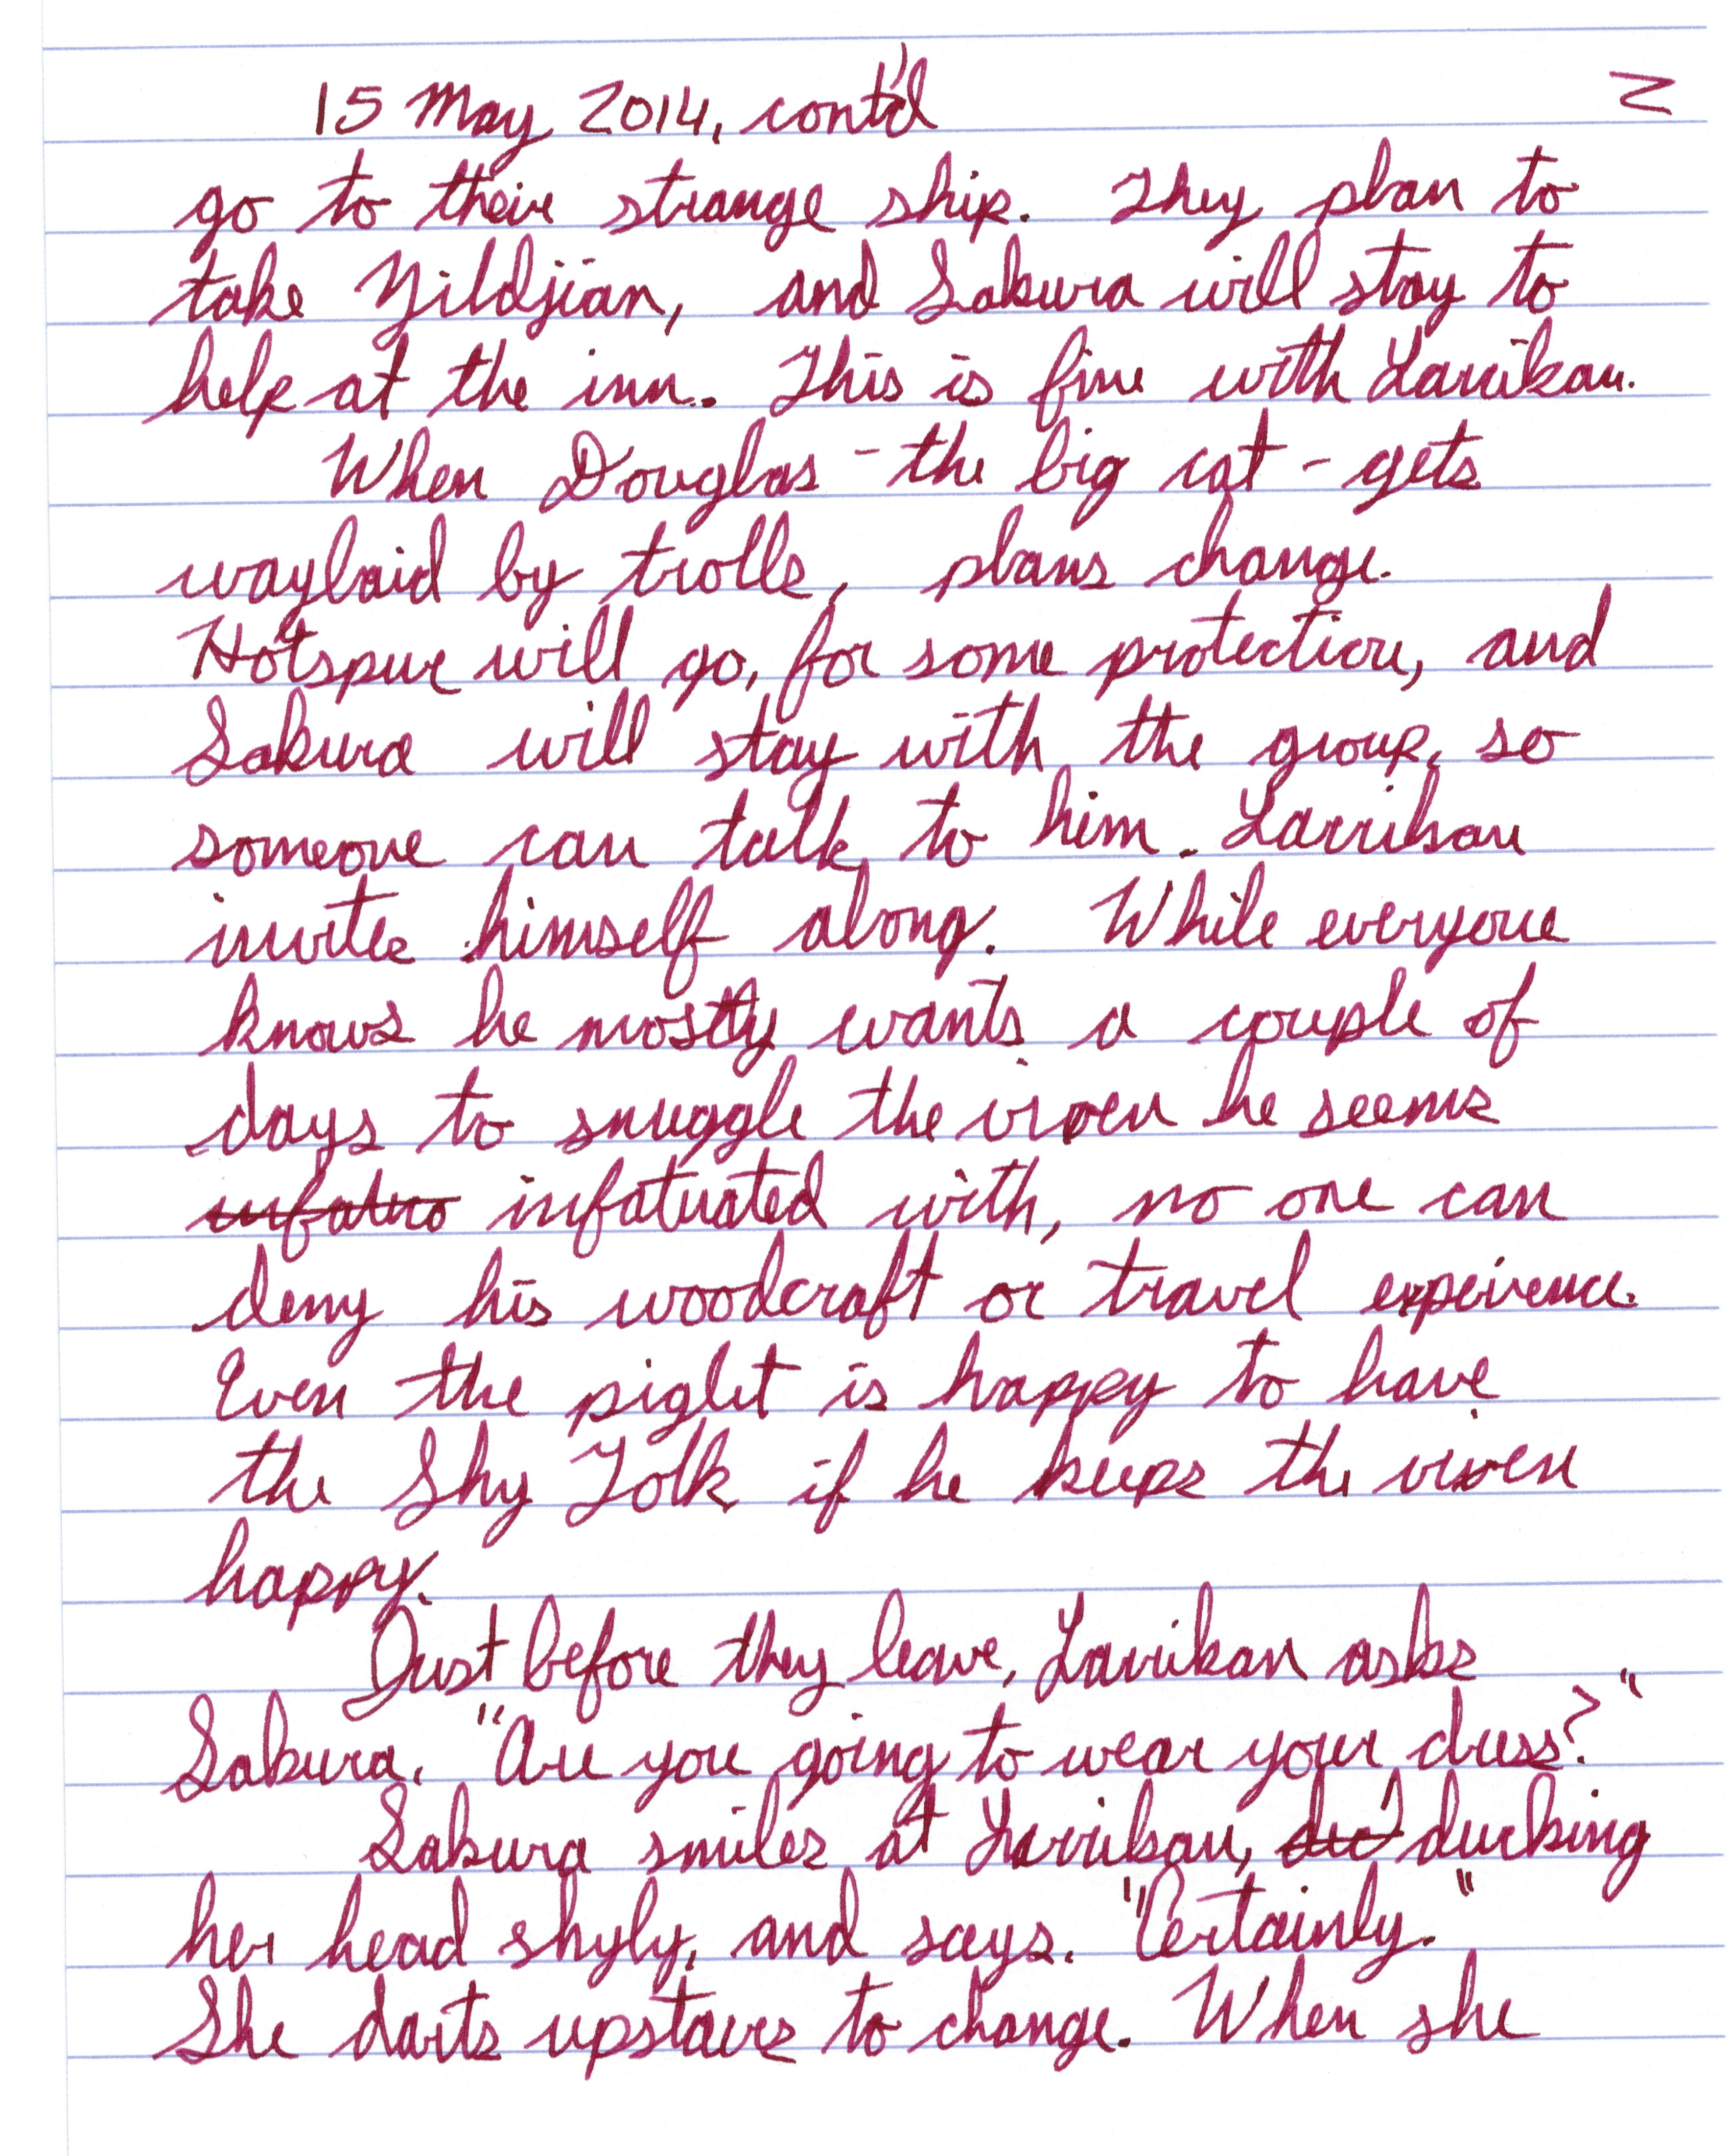 15 May 2014, cont'd 2
go to their strange ship. They plan to
take Yildjian, and Sakura will stay to
help at the inn. This is fine with Larrikan.
When Douglas - the big cat - gets
waylaid by trolls, plans change.
Hotspur will go, for some protection, and
Sakura will stay with the group, so
someone can talk to him. Larrikan
invites himself along. While everyone
knows he mostly wants a couple of
days to snuggle the vixen he seems
infatuated with, no one can
deny his woodcraft or travel experience.
Even the piglet is happy to have
the Shy Folk if he keeps the vixen
happy.
Just before they leave, Larrikan asks
Sakura, "Are you going to wear your dress?"
Sakura smiles at Larrikan, ducking
her head shyly, and says, "Certainly."
She darts upstairs to change. When she